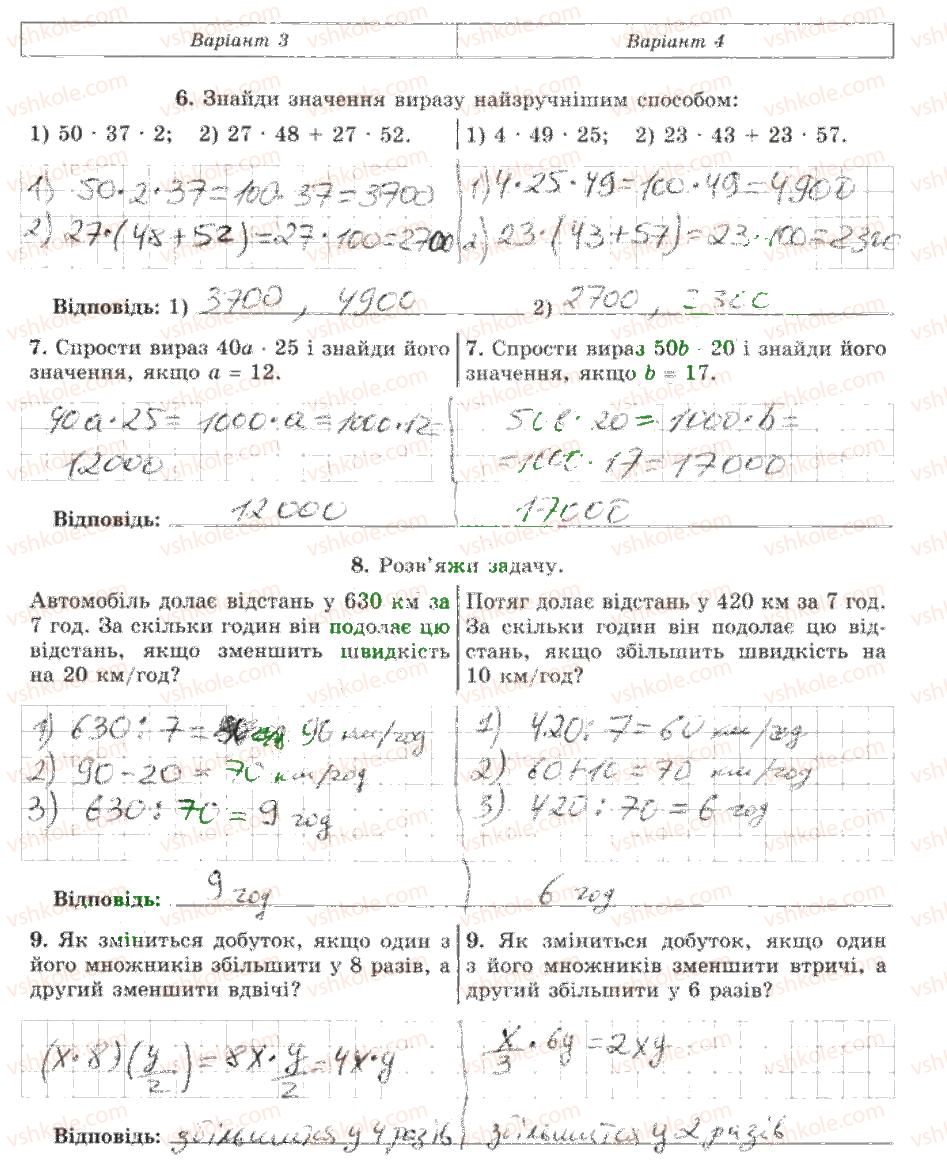 Варіант 3
Варіант 4
6. Знайди значення виразу найзручнішим способом:
1) 50 · 37 · 2; 2) 27 · 48 + 27 · 52.
1) 4 · 49 · 25; 2) 23 · 43 + 23 · 57.
1) 50·2·37=100·37=3700
2) 27·(48+52)=27·100=2700
1) 4·25·49=100·49=4900
2) 23·(43+57)=23·100=2300
Відповідь: 1) 3700, 4900 2) 2700, 2300
7. Спрости вираз 40a · 25 і знайди його
значення, якщо a = 12.
7. Спрости вираз 50b · 20 і знайди його
значення, якщо b = 17.
40a·25= 1000·a=1000·12=
12000
50b·20=1000·b=
=1000·17=17000
Відповідь: 12000 17000
8. Розв'яжи задачу.
Автомобіль долає відстань у 630 км за
7 год. За скільки годин він подолає цю
відстань, якщо зменшить швидкість
на 20 км/год?
Потяг долає відстань у 420 км за 7 год.
За скільки годин він подолає цю від-
стань, якщо збільшить швидкість на
10 км/год?
1) 630:7= 90 км/год
2) 90-20=70 км/год
3) 630:70=9 год
1) 420:7=60 км/год
2) 60+10=70 км/год
3) 420:70=6 год
Відповідь: 9 год 6 год
9. Як зміниться добуток, якщо один з
його множників збільшити у 8 разів, а
другий зменшити вдвічі?
9. Як зміниться добуток, якщо один
з його множників зменшити втричі, а
другий збільшити у 6 разів?
(x·8)(y/2)=8x·y/2=4x·y
x/3·6y=2xy
Відповідь: збільшится у 4 разів збільшится у 2 разів